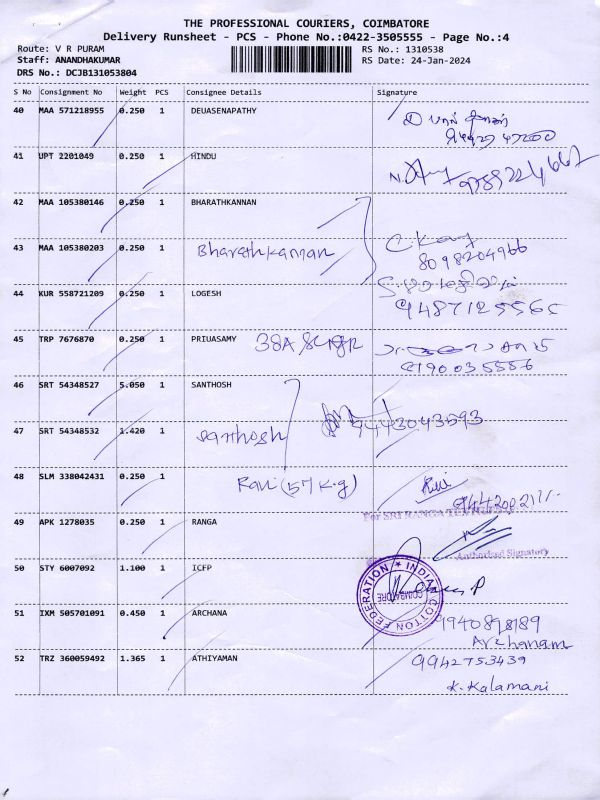 THE PROFESSIONAL COURIERS, COIMBATORE
Delivery Runsheet - PCS - Phone No.:0422-3505555 - Page No.:4
Route: V R PURAM
Staff: ANANDHAKUMAR
DRS No.: DCJB131053804
RS No.: 1310538
RS Date: 24-Jan-2024
S No Consignment No Weight PCS Consignee Details Signature
40 MAA 571218955 0.250 1 DEUASENAPATHY
41 UPT 2201049 0.250 1 HINDU
42 MAA 105380146 0.250 1 BHARATHKANNAN
43 MAA 105380203 0.250 1 Bharathkannan
8098204966
44 KUR 558721209 0.250 1 LOGESH
9487125565
45 TRP 7676870 0.250 1 PRIUASAMY
9190035556
46 SRT 54348527 5.050 1 SANTHOSH
47 SRT 54348532 1.420 1 santhosh 9443043593
48 SLM 338042431 0.250 1 Ravi (57 K.g)
Ravi
For SRI RANGA
49 APK 1278035 0.250 1 RANGA
Authorised Signatory
50 STY 6007092 1.100 1 ICFP
INDIAN COTTON FEDERATION
COIMBATORE
51 IXM 505701091 0.450 1 ARCHANA
Archanam
52 TRZ 360059492 1.365 1 ATHIYAMAN 9942753439
K. Kalamani